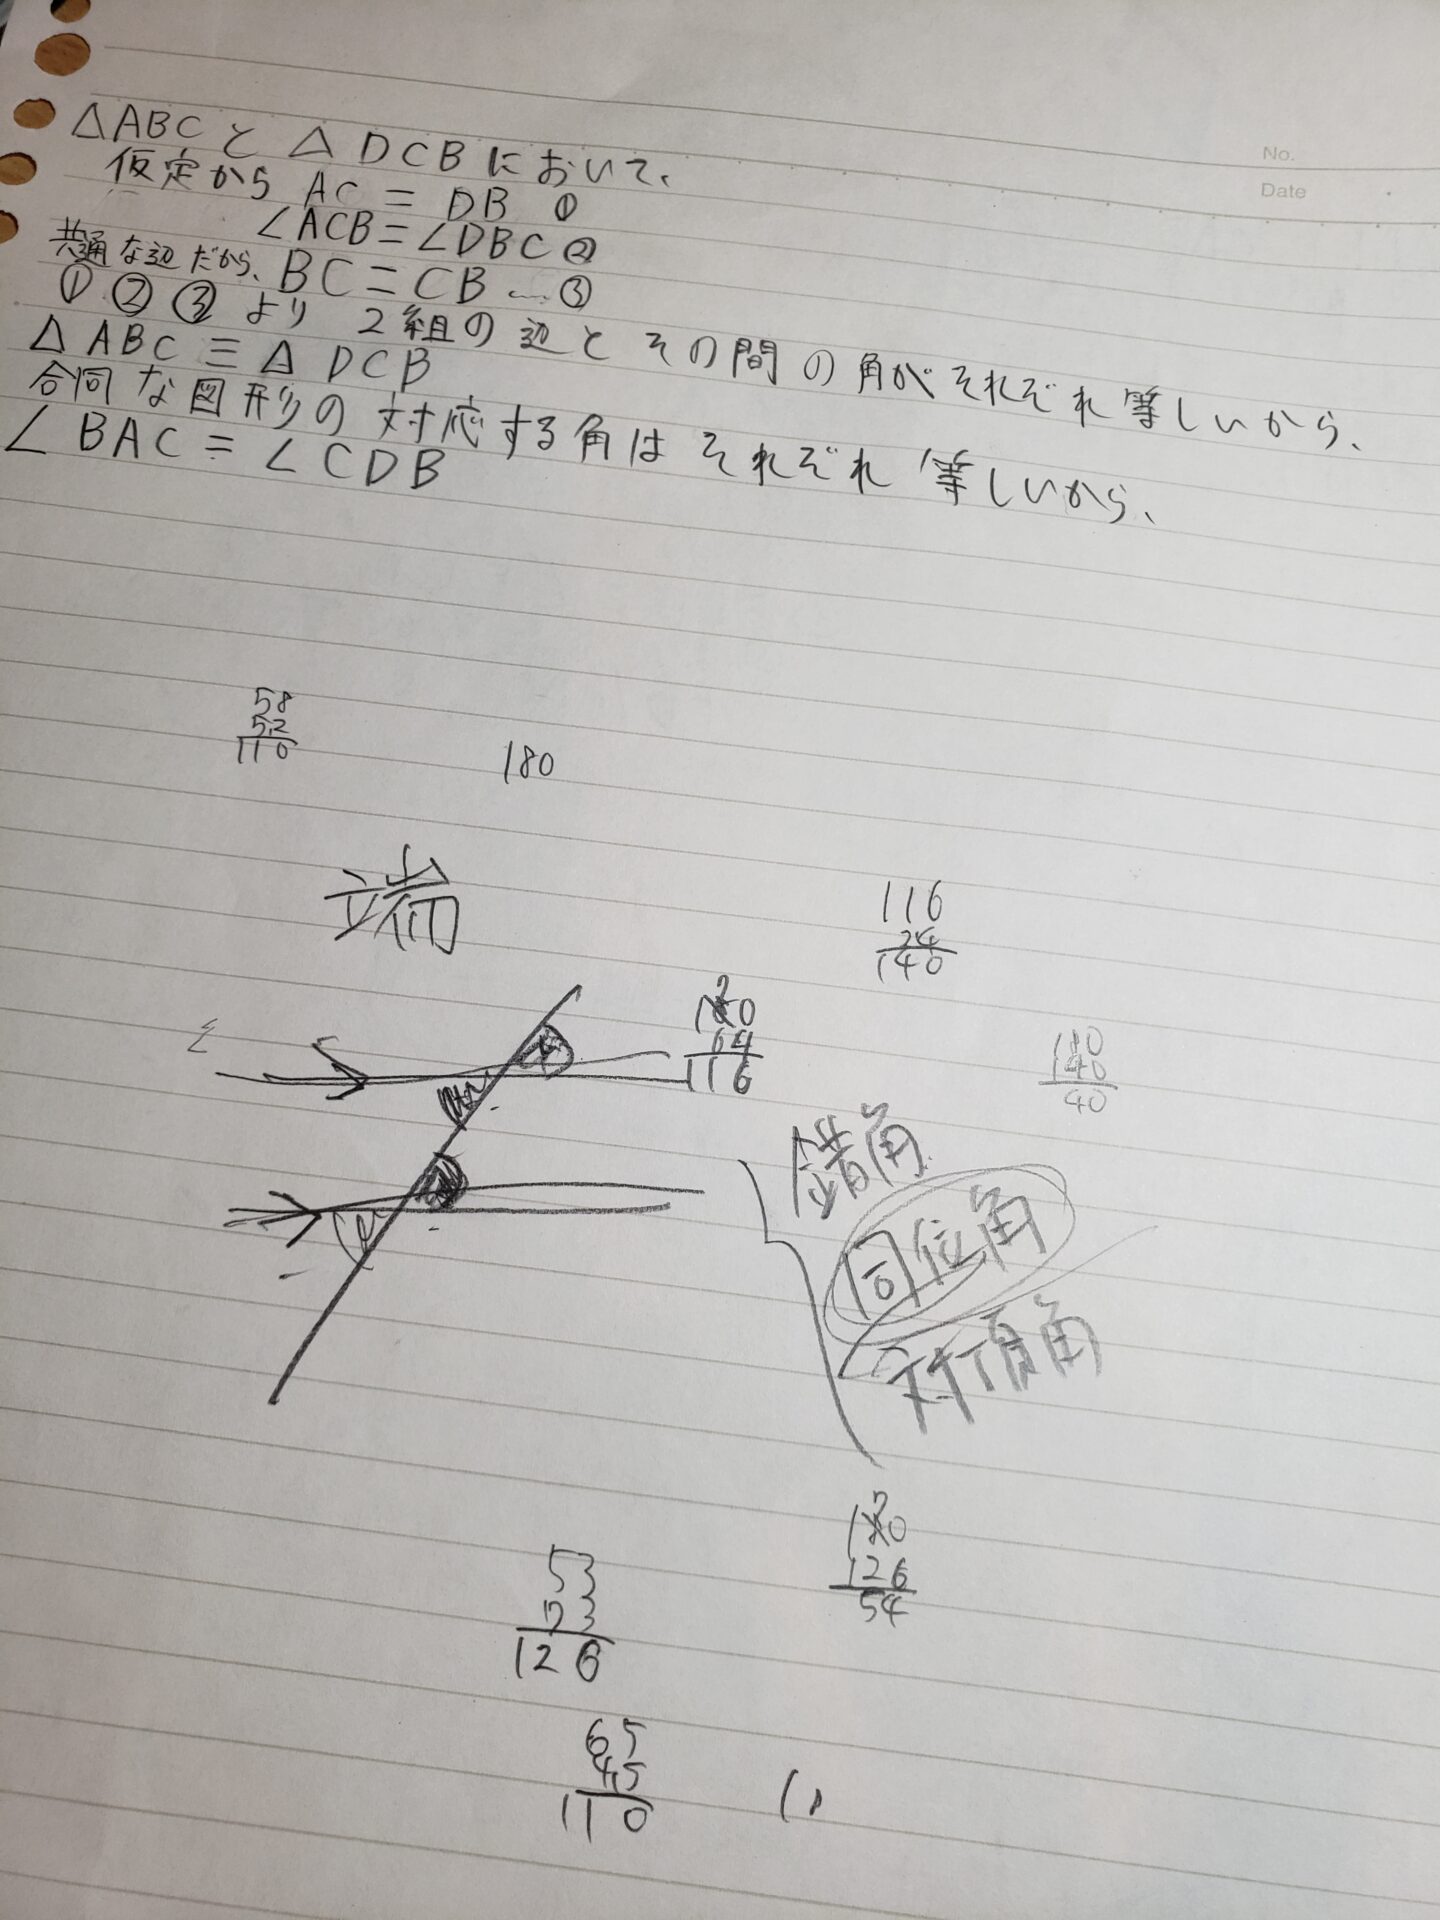 No.
Date
△ABCと△DCBにおいて、
仮定から AC = DB ①
∠ACB=∠DBC ②
共通な辺だから、BC=CB … ③
① ② ③ より 2組の辺とその間の角がそれぞれ等しいから、
△ABC≡△DCB
合同な図形の対応する角はそれぞれ等しいから、
∠BAC=∠CDB
58
52
110
180
端
116
24
140
180
64
116
180
140
40
錯角
同位角
対頂角
180
126
54
53
73
126
65
45
110